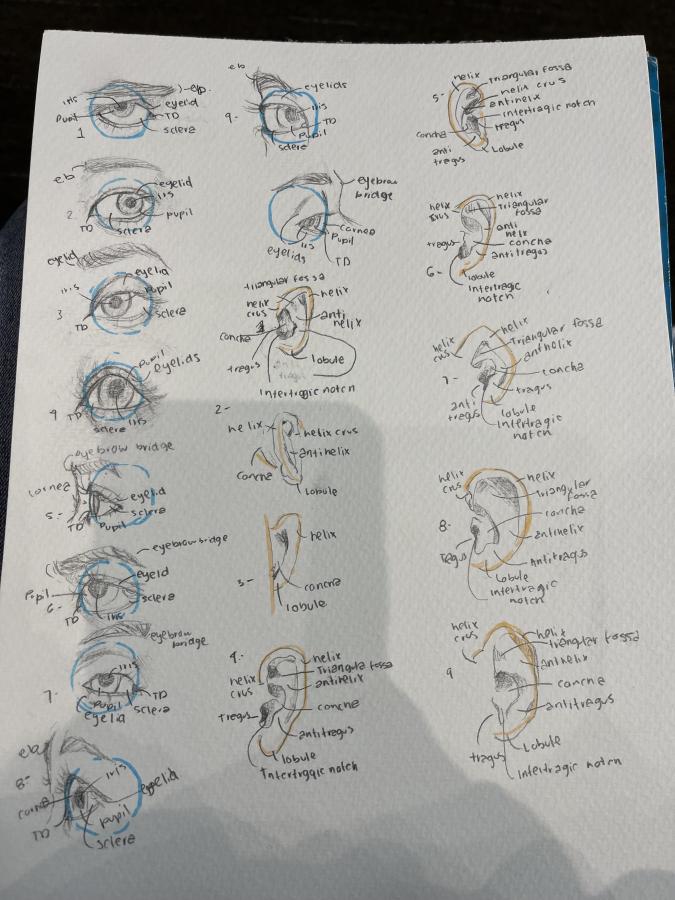 iris
eyelid
Pupil
TD
sclera
1
eb
eyelid
iris
2
pupil
TD
sclera
eyelid
eyelid
iris
Pupil
3
sclera
TD
Pupil
eyelids
TD
sclera
iris
eyebrow bridge
cornea
eyelid
5-
sclera
TD
Pupil
eyebrow bridge
eyelid
Pupil
sclera
6-
TD
iris
eyebrow
bridge
iris
7-
TD
Pupil
sclera
eyelid
8-
iris
eyelid
TD
pupil
sclera
eb
eyelids
9-
iris
TD
Pupil
sclere
eyebrow
bridge
cornea
Pupil
iris
eyelids
TD
triangular fossa
helix
helix
crus
anti
helix
concha
lobule
tragus
anti
tragus
Intertragic notch
2-
helix
helix crus
antihelix
concha
lobule
helix
3-
concha
lobule
4-
helix
Triangular fossa
helix
crus
antihelix
concha
Tragus
antitragus
lobule
Intertragic notch
helix
Triangular fossa
5-
helix crus
antihelix
intertragic notch
concha
tragus
anti
tragus
Lobule
helix
helix
crus
Triangular
fossa
anti
helix
tragus
concha
antitragus
6-
lobule
Intertragic
notch
helix
crus
helix
Triangular fossa
anthelix
7-
concha
tragus
anti
tragus
lobule
Intertragic
notch
helix
crus
helix
triangular
fossa
concha
8-
antihelix
Tragus
Antitragus
Lobule
Intertragic
notch
helix
crus
helix
triangular fossa
9
antihelix
concha
antitragus
tragus
Lobule
Intertragic notch